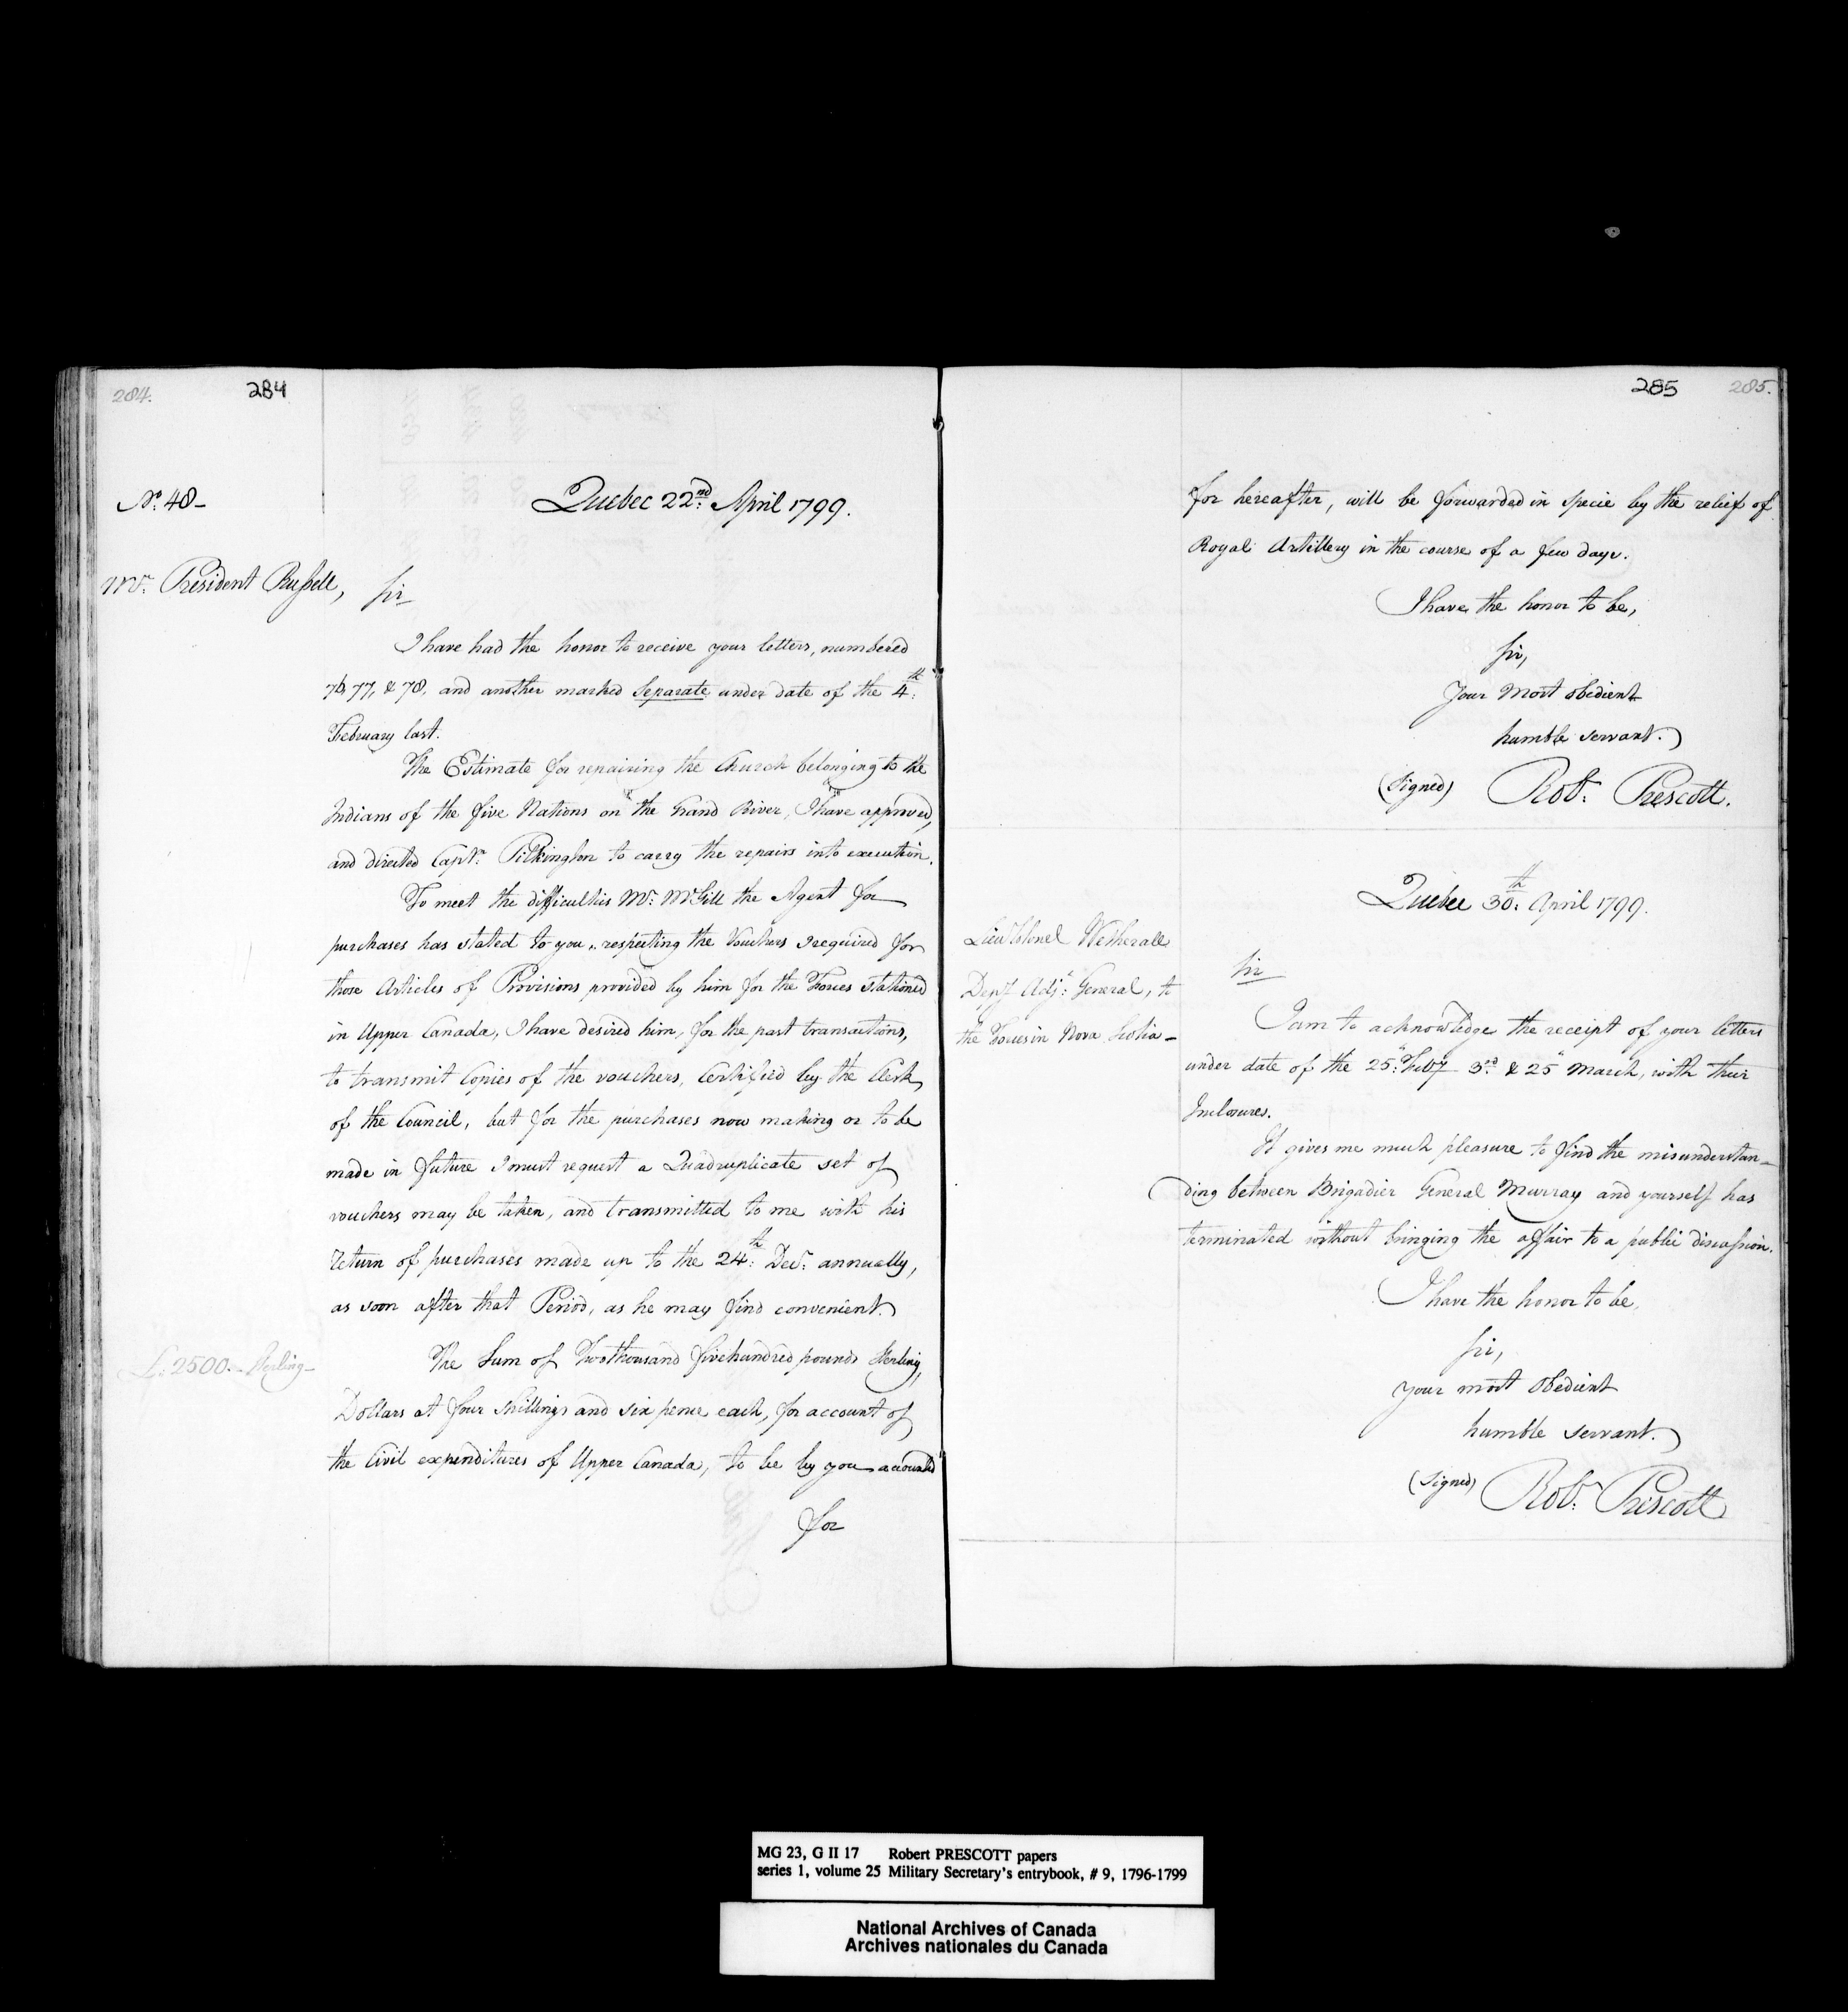 284.
284
No. 48 -
Quebec 22nd: April 1799.
Mr. President Russell,
Sir
I have had the honor to receive your letters, numbered
76, 77, & 78, and another marked Separate under date of the 4th:
February last.
The Estimate for repairing the Church belonging to the
Indians of the five Nations on the Grand River, I have approved,
and directed Captn: Pilkington to carry the repairs into execution.
To meet the difficulties Mr: McGill the Agent for
purchases has stated to you, respecting the Vouchers I required for
those Articles of Provisions provided by him for the Forces stationed
in Upper Canada, I have desired him, for the past transactions,
to transmit Copies of the vouchers, Certified by the Clerk
of the Council, but for the purchases now making or to be
made in future I must request a Quadruplicate set of
vouchers may be taken, and transmitted to me with his
return of purchases made up to the 24th: Decr: annually,
as soon after that Period, as he may find convenient.
£.2500.- Sterling-
The Sum of Two thousand five hundred pounds Sterling,
Dollars at four Shillings and six pence each, for account of
the Civil expenditures of Upper Canada, to be by you accounted
for
285
285.
for hereafter, will be forwarded in specie by the relief of
Royal Artillery in the course of a few days.
I have the honor to be,
Sir,
Your Most obedient
humble servant.
(Signed) Robt: Prescott.
Quebec 30th: April 1799.
Lieut Colonel Wetherall
Depy Adjt: General, to
the Forces in Nova Scotia -
Sir
I am to acknowledge the receipt of your letters
under date of the 25th: Feby 3rd: & 25th March, with their
Inclosures.
It gives me much pleasure to find the misunderstan-
ding between Brigadier General Murray and yourself has
terminated without bringing the affair to a public discussion.
I have the honor to be,
Sir,
your most Obedient
humble servant.
(Signed) Robt: Prescott
MG 23, G II 17 Robert PRESCOTT papers
series 1, volume 25 Military Secretary's entrybook, # 9, 1796-1799
National Archives of Canada
Archives nationales du Canada